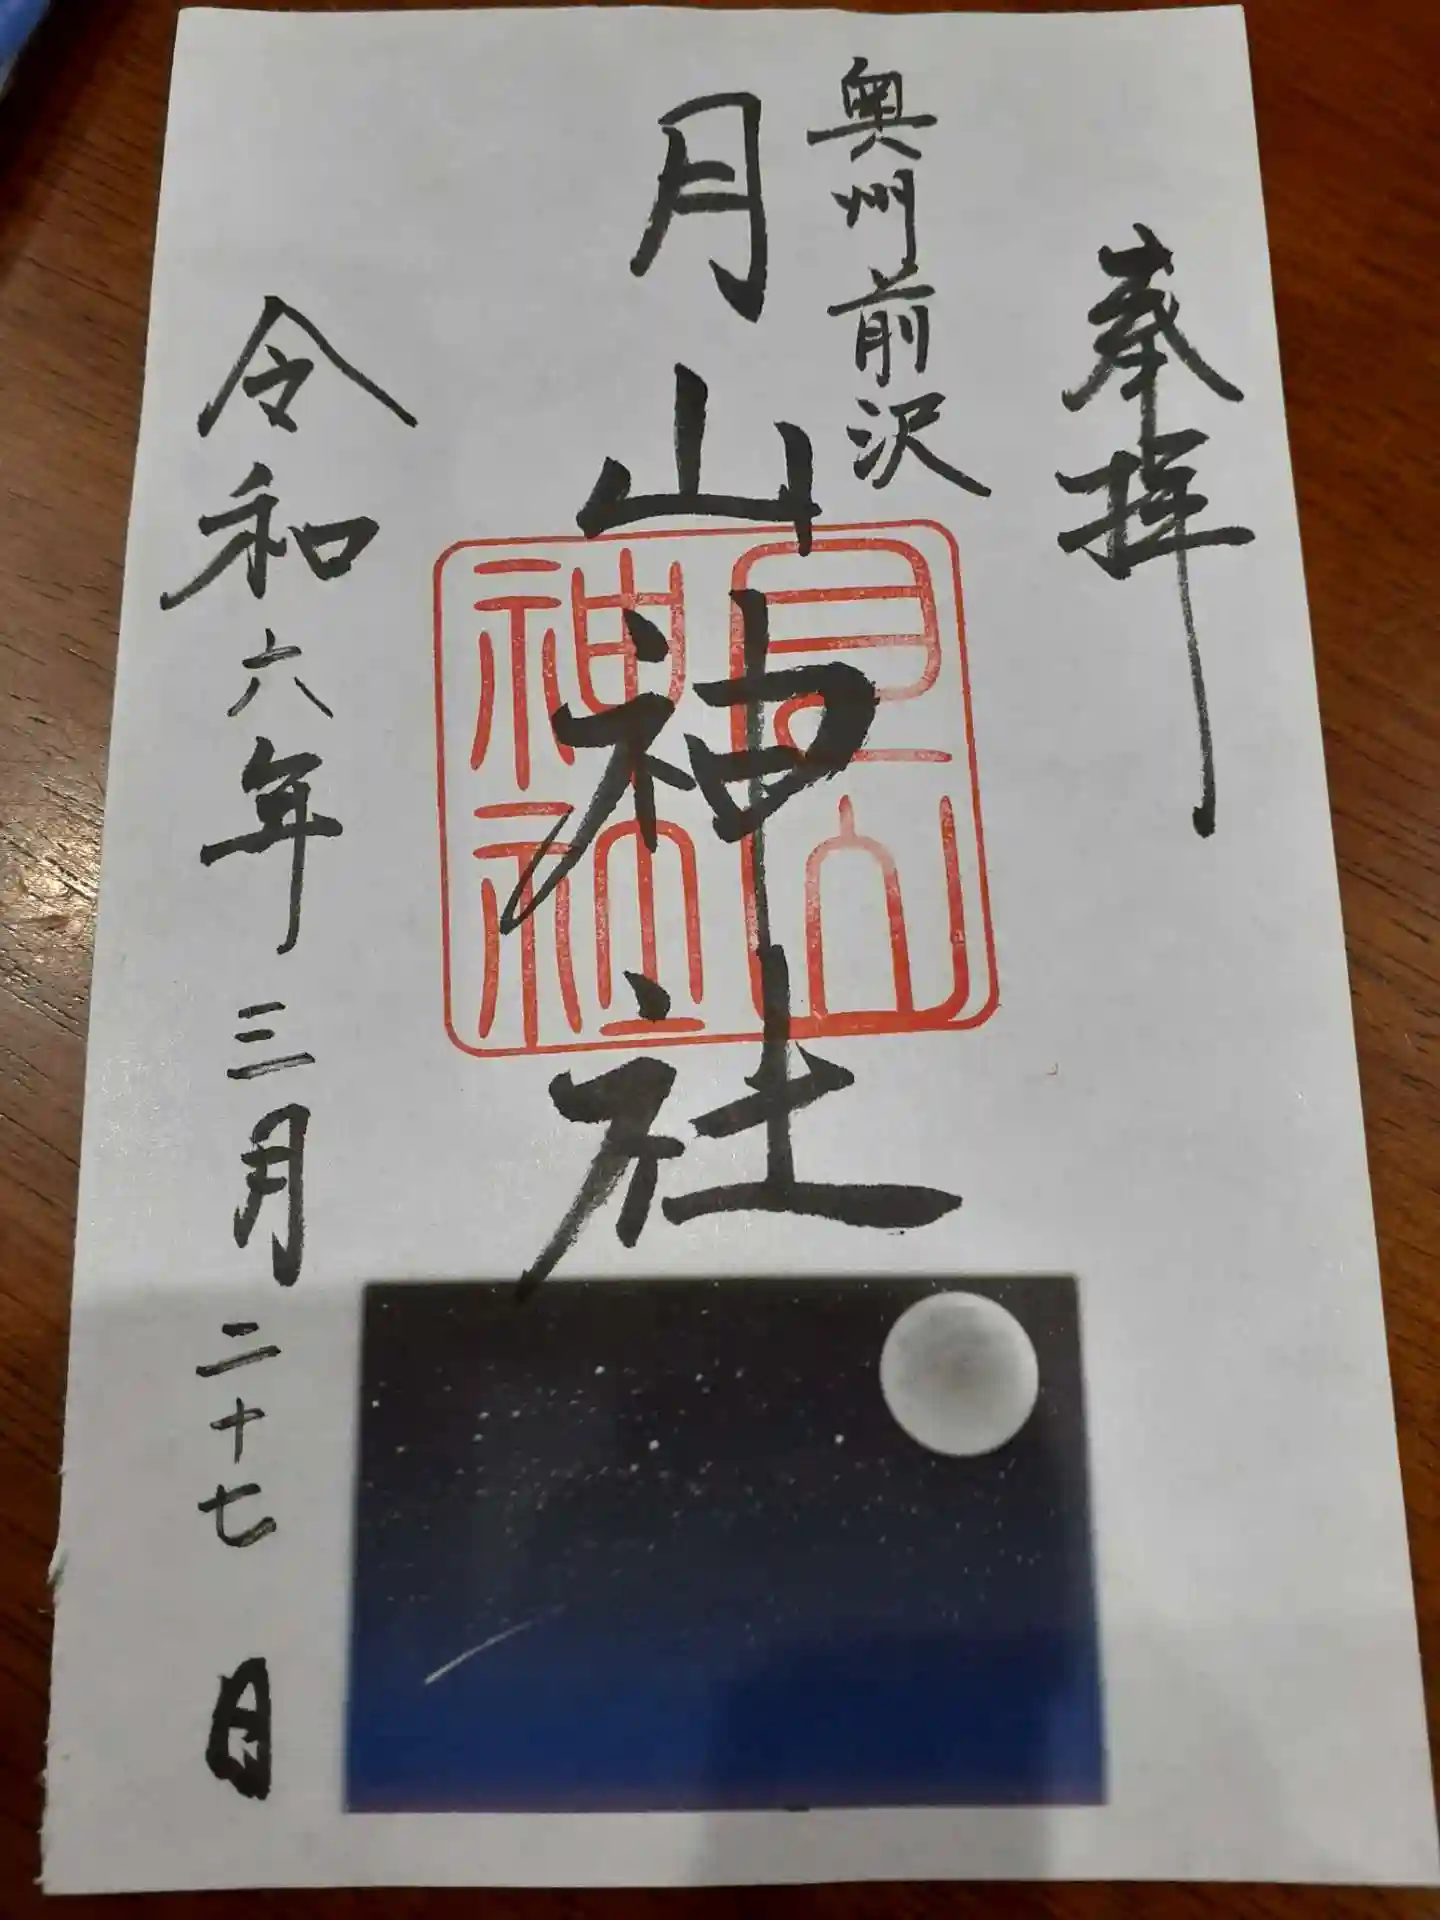 奉拝
奥州前沢
月山神社
月山
神社
令和六年三月二十七日